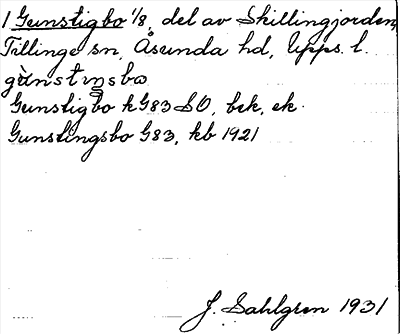 1 Gunstigbo 1/8, del av Skillingjorden,
Tillinge sn, Åsunda hd, Upps. l.
gùnstɩŋsbω
Gunstigbo kG83 SO, bek, ek.
Gunstingsbo G83, kb 1921
J. Sahlgren 1931